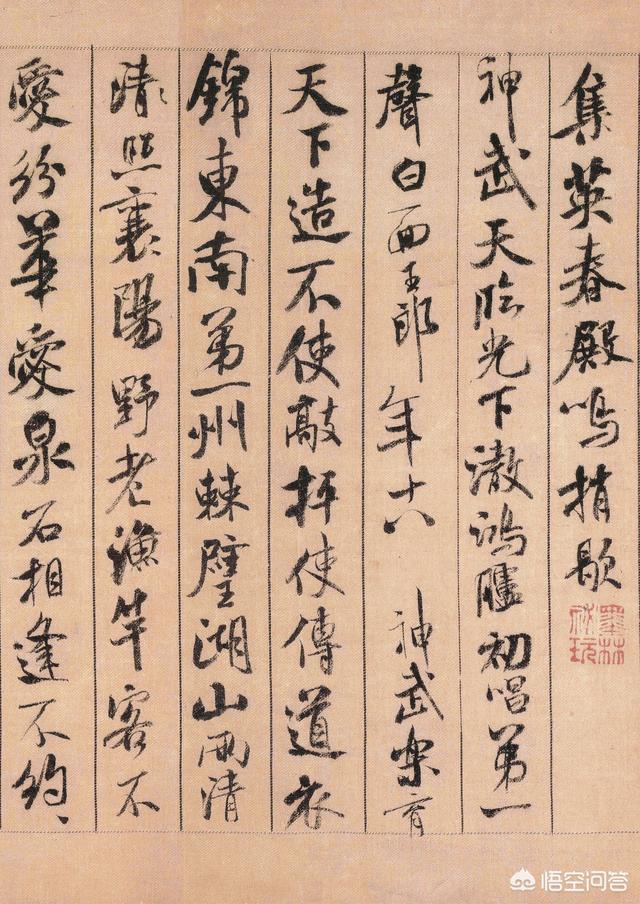 集英春殿鳴捎歇
神武天臨光下澈鴻臚初唱第一
聲白面玉郎年十八神武樂育
天下造不使敲抨使傳道衣
錦東南第一州棘璧湖山兩清
清照襄陽野老漁竿客不
愛紛華愛泉石相逢不約
墨林祕玩
悟空问答